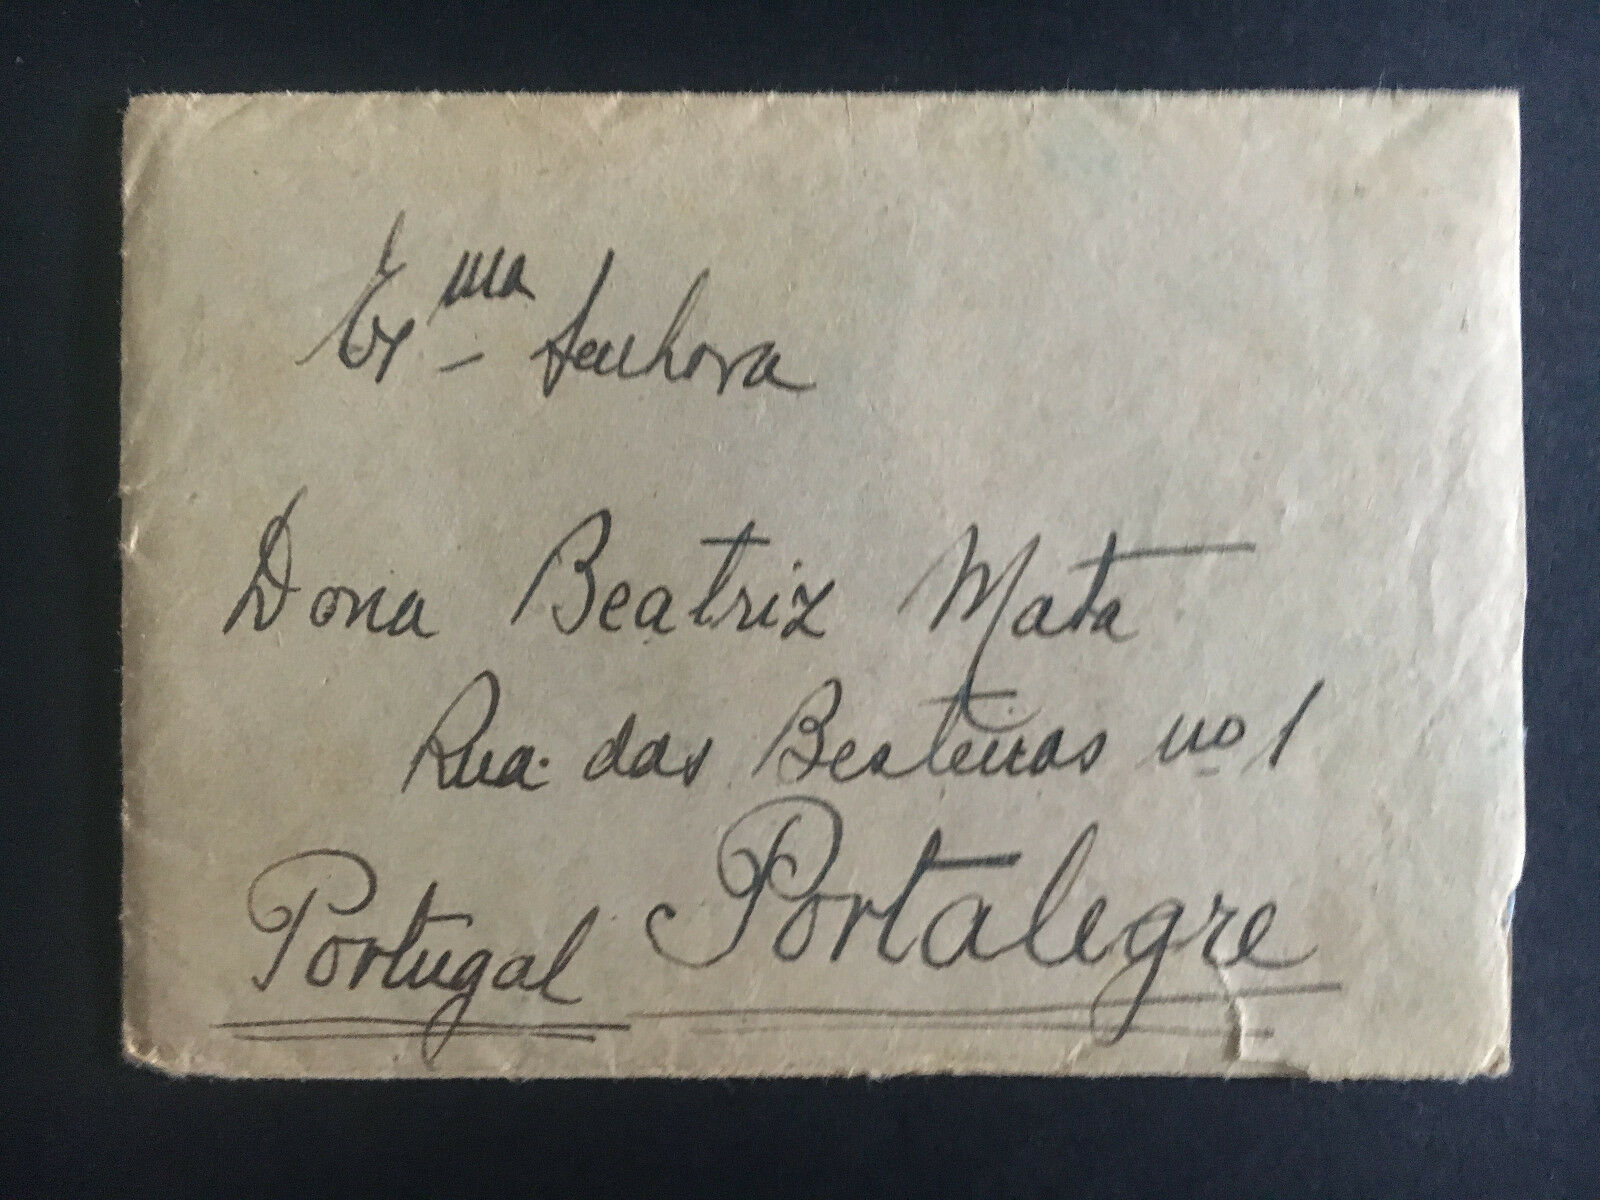 Exma Senhora
Dona Beatriz Mata
Rua das Besteiras nº 1
Portalegre
Portugal